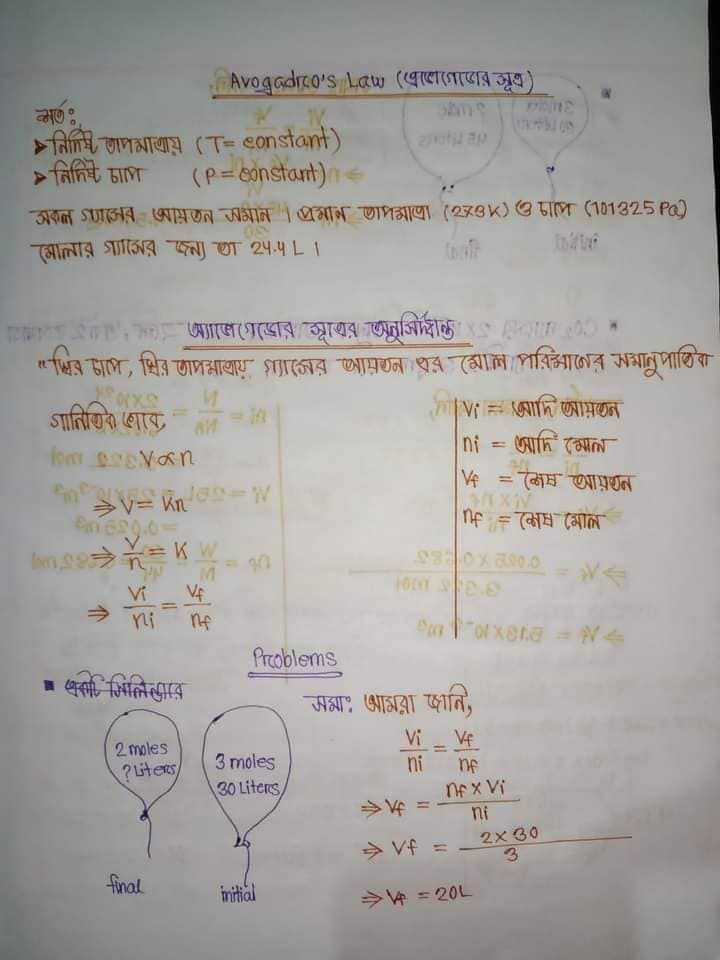 Avogadro's Law (এভোগেড্রোর সূত্র)
শর্ত:
➤ নির্দিষ্ট তাপমাত্রায় (T = constant)
➤ নির্দিষ্ট চাপ (P = constant)
সকল গ্যাসের আয়তন সমান । প্রমান তাপমাত্রা (273K) ও চাপ (101325 Pa)
মোলার গ্যাসের জন্য তা 24.4 L ।
অ্যাভোগেড্রোর সূত্রের অনুসিদ্ধান্ত
"স্থির চাপে, স্থির তাপমাত্রায় গ্যাসের আয়তন এর মোল পরিমানের সমানুপাতিক
গানিতিক ভাবে,
V ∝ n
⇒ V = Kn
⇒ V/n = K
⇒ Vi/ni = Vf/nf
Vi = আদি আয়তন
ni = আদি মোল
Vf = শেষ আয়তন
nf = শেষ মোল
Problems
▪ একটি সিলিন্ডারে
2 moles
? Liters
final
3 moles
30 Liters
initial
সমা: আমরা জানি,
Vi/ni = Vf/nf
⇒ Vf = nf × Vi / ni
⇒ Vf = 2 × 30 / 3
⇒ Vf = 20L